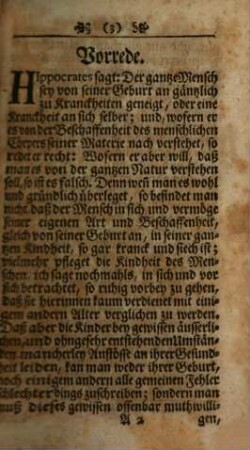 (3)
Vorrede.
Hippocrates sagt: Der gantze Mensch
sey von seiner Geburt an gäntzlich
zu Kranckheiten geneigt, oder eine
Kranckheit an sich selber; und, wofern er
es von der Beschaffenheit des menschlichen
Cörpers seiner Materie nach verstehet, so
redet er recht: Wofern er aber will, daß
man es von der gantzen Natur verstehen
soll, so ist es falsch. Denn weñ man es wohl
und gründlich überleget, so befindet man
nicht daß der Mensch in sich und vermöge
seiner eigenen Art und Beschaffenheit,
gleich von seiner Geburt an, in seiner gan-
tzen Kindheit, so gar kranck und siech ist;
vielmehr pflegt die Kindheit des Men-
schen, ich sag nochmahls, in sich und vor
sich betrachtet, so ruhig vorbey zu gehen,
daß sie hierinnen kaum verdienet mit eini-
gem andern Alter verglichen zu werden.
Daß aber die Kinder bey gewissen äuserli-
chen, und ohngefehr entstehenden Umstän-
den mancherley Anstösse an ihrer Gesund-
heit leiden, kan man weder ihrer Geburt,
noch einigem andern allgemeinen Fehler
schlechterdings zuschreiben; sondern man
muß dieses gewissen offenbar muthwilli-
A 2 gen,